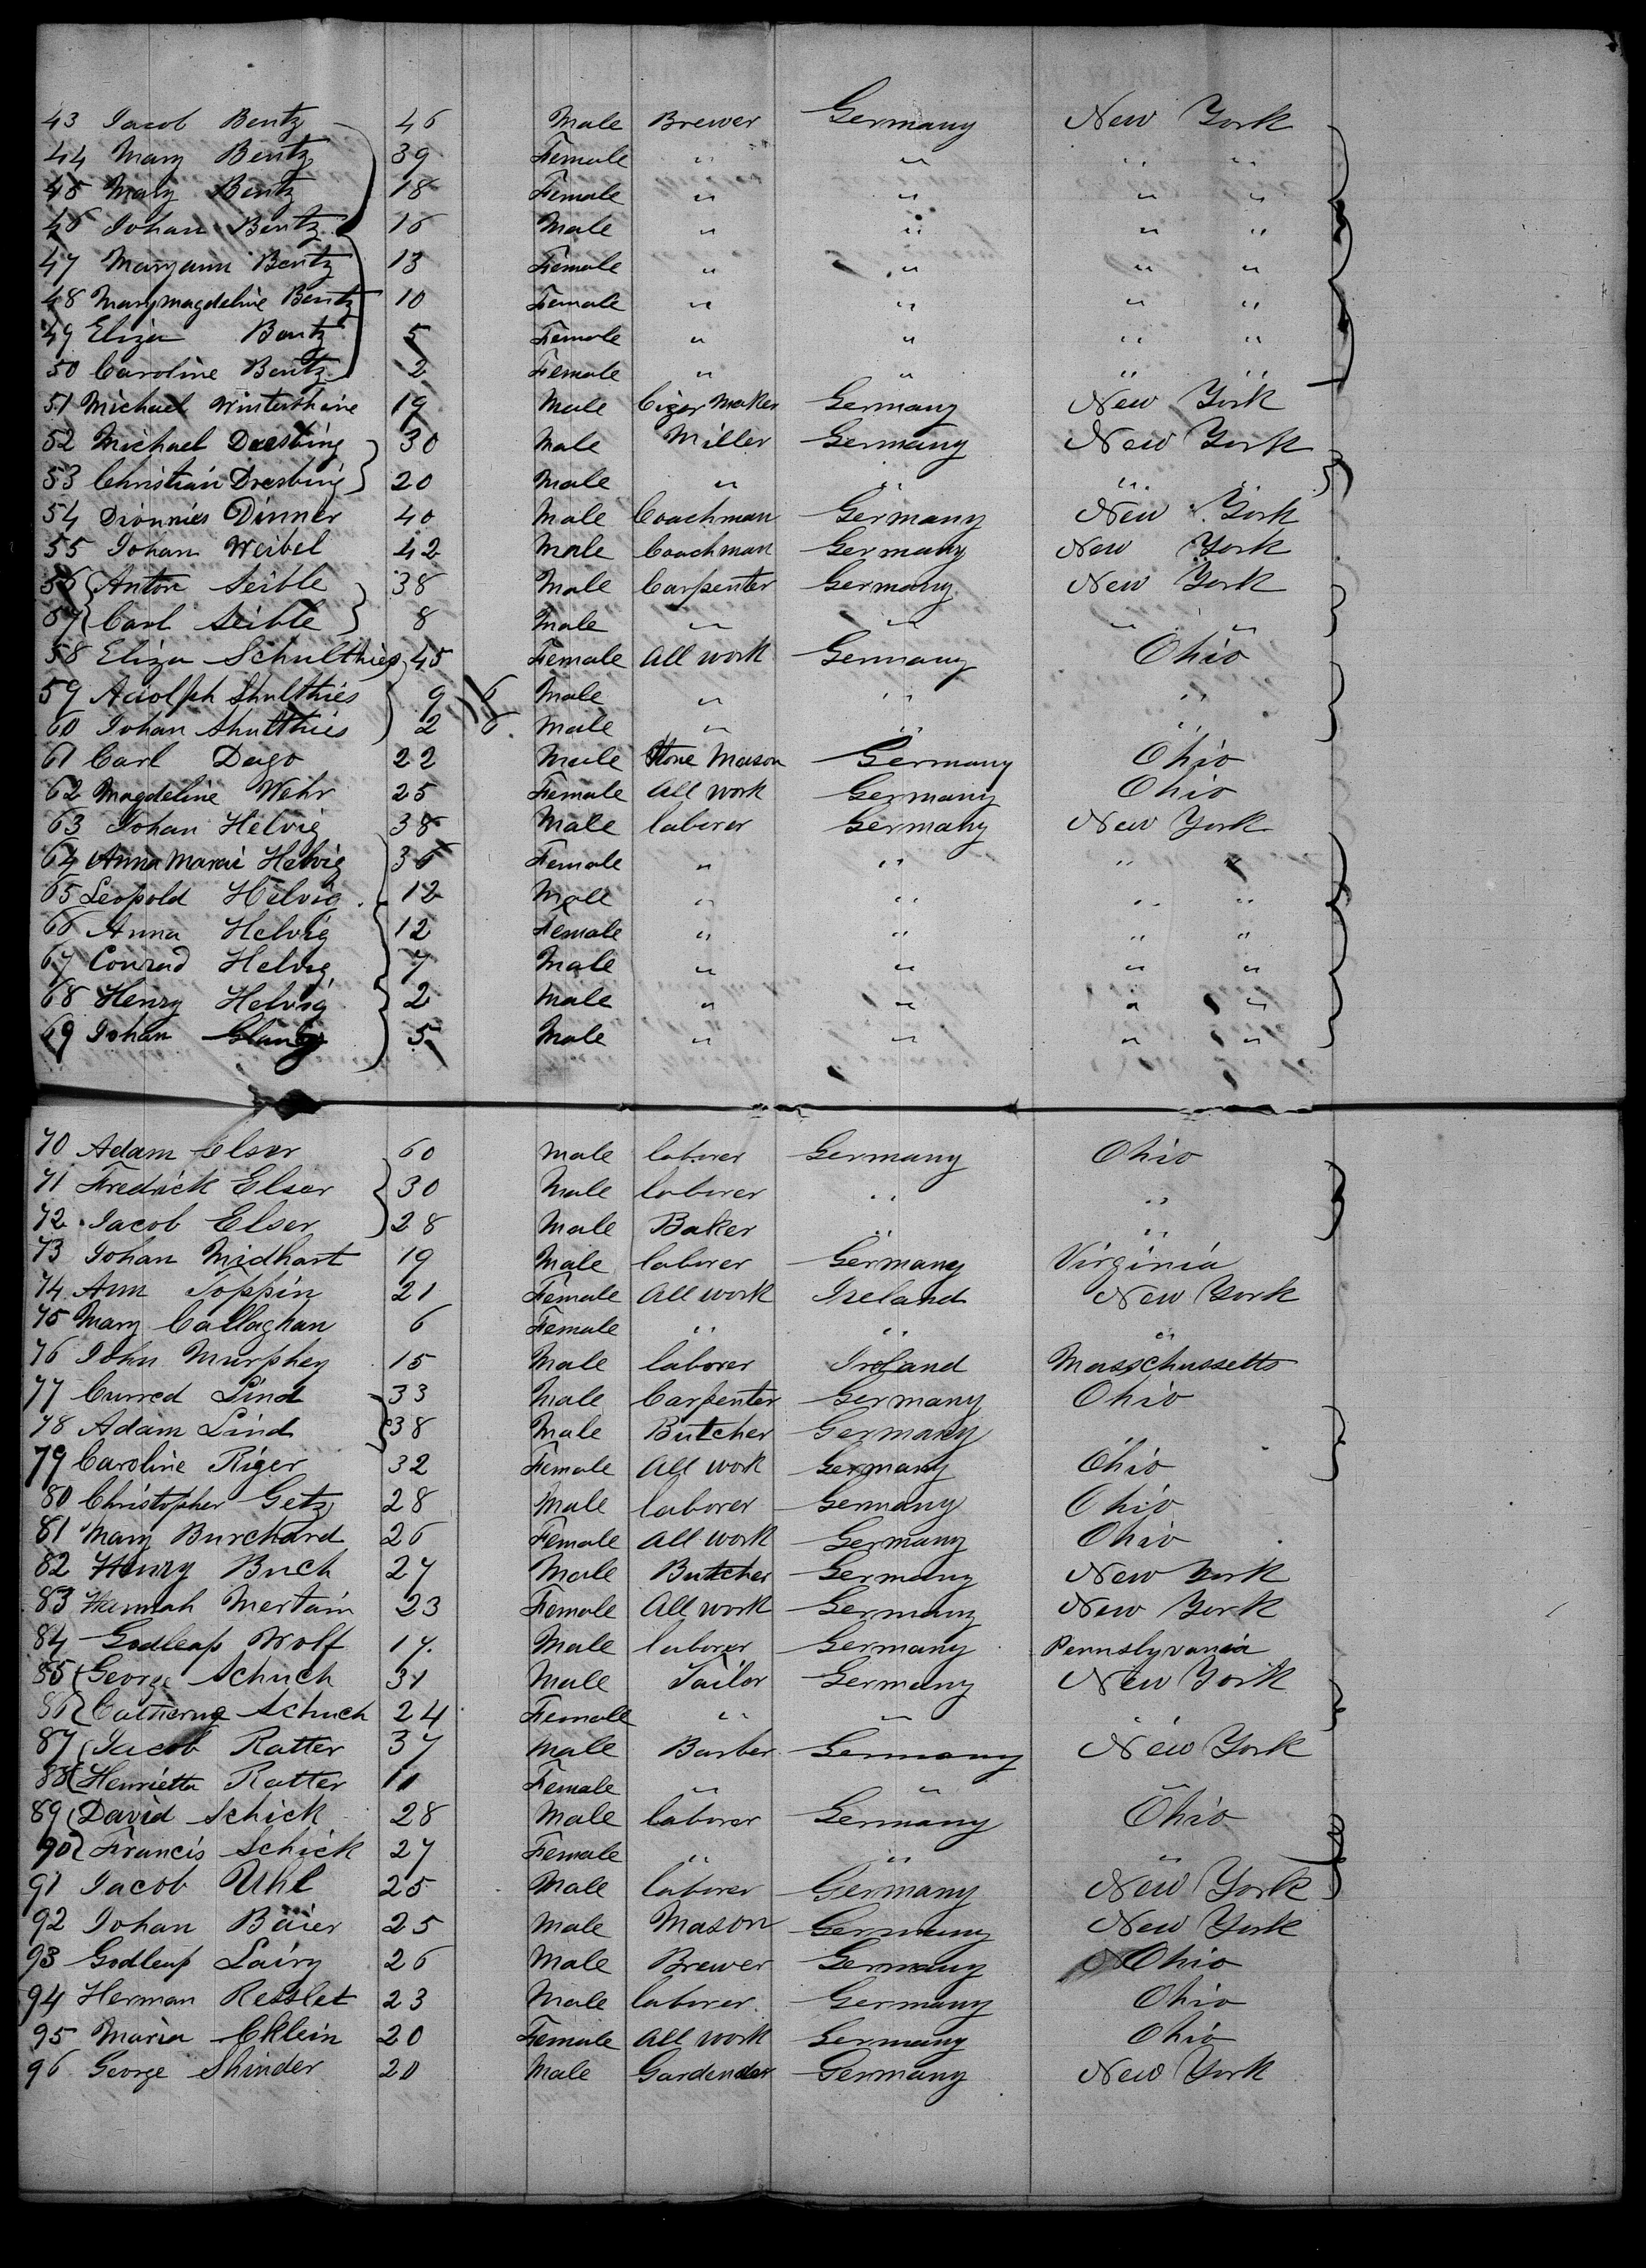 43 Jacob Bentz 46 Male Brewer Germany New York
44 Mary Bentz 39 Female " " " "
45 Mary Bentz 18 Female " " " "
46 Johan Bentz 16 Male " " " "
47 Maryann Bentz 13 Female " " " "
48 Marymagdeline Bentz 10 Female " " " "
49 Eliza Bentz 5 Female " " " "
50 Caroline Bentz 2 Female " " " "
51 Michael Winterthine 19 Male Cigar Maker Germany New York
52 Michael Dresbing 30 Male Miller Germany New York
53 Christian Dresbing 20 Male " " " "
54 Dionnies Dinner 40 Male Coachman Germany New York
55 Johan Weibel 42 Male Coachman Germany New York
56 Anton Seible 38 Male Carpenter Germany New York
57 Carl Seible 8 Male " " " "
58 Eliza Schulthies 45 Female All work Germany Ohio
59 Adolph Shulthies 9 6 Male " " "
60 Johan Shulthies 2 6 Male " " "
61 Carl Dago 22 Male Stone Mason Germany Ohio
62 Magdeline Wehr 25 Female All work Germany Ohio
63 Johan Helvig 38 Male laborer Germany New York
64 Anna Marie Helvig 36 Female " " " "
65 Leopold Helvig 12 Male " " " "
66 Anna Helvig 12 Female " " " "
67 Conrad Helvig 7 Male " " " "
68 Henry Helvig 2 Male " " " "
69 Johan 5 Male " " " "
70 Adam Elser 60 Male laborer Germany Ohio
71 Fredrick Elser 30 Male laborer " "
72 Jacob Elser 28 Male Baker " "
73 Johan Midhart 19 Male laborer Germany Virginia
74 Ann Toppin 21 Female All work Ireland New York
75 Mary Callaghan 6 Female " " "
76 John Murphey 15 Male laborer Ireland Masschussetts
77 Curred Lind 33 Male Carpenter Germany Ohio
78 Adam Lind 38 Male Butcher Germany
79 Caroline Riger 32 Female All work Germany Ohio
80 Christopher Getz 28 Male laborer Germany Ohio
81 Mary Burchard 26 Female All work Germany Ohio
82 Henry Buch 27 Male Butcher Germany New York
83 Hannah Mertain 23 Female All work Germany New York
84 Godleap Wolf 17 Male laborer Germany Pennslyvania
85 George Schuch 31 Male Tailor Germany New York
86 Catherine Schuch 24 Female " " "
87 Jacob Ratter 37 Male Barber Germany New York
88 Henrietta Ratter 11 Female " " "
89 David Schick 28 Male laborer Germany Ohio
90 Francis Schick 27 Female " " "
91 Jacob Uhl 25 Male laborer Germany New York
92 Johan Baier 25 Male Mason Germany New York
93 Godleap Lairy 26 Male Brewer Germany Ohio
94 Herman Resslet 23 Male laborer Germany Ohio
95 Maria Cklein 20 Female All work Germany Ohio
96 George Shinder 20 Male Gardender Germany New York